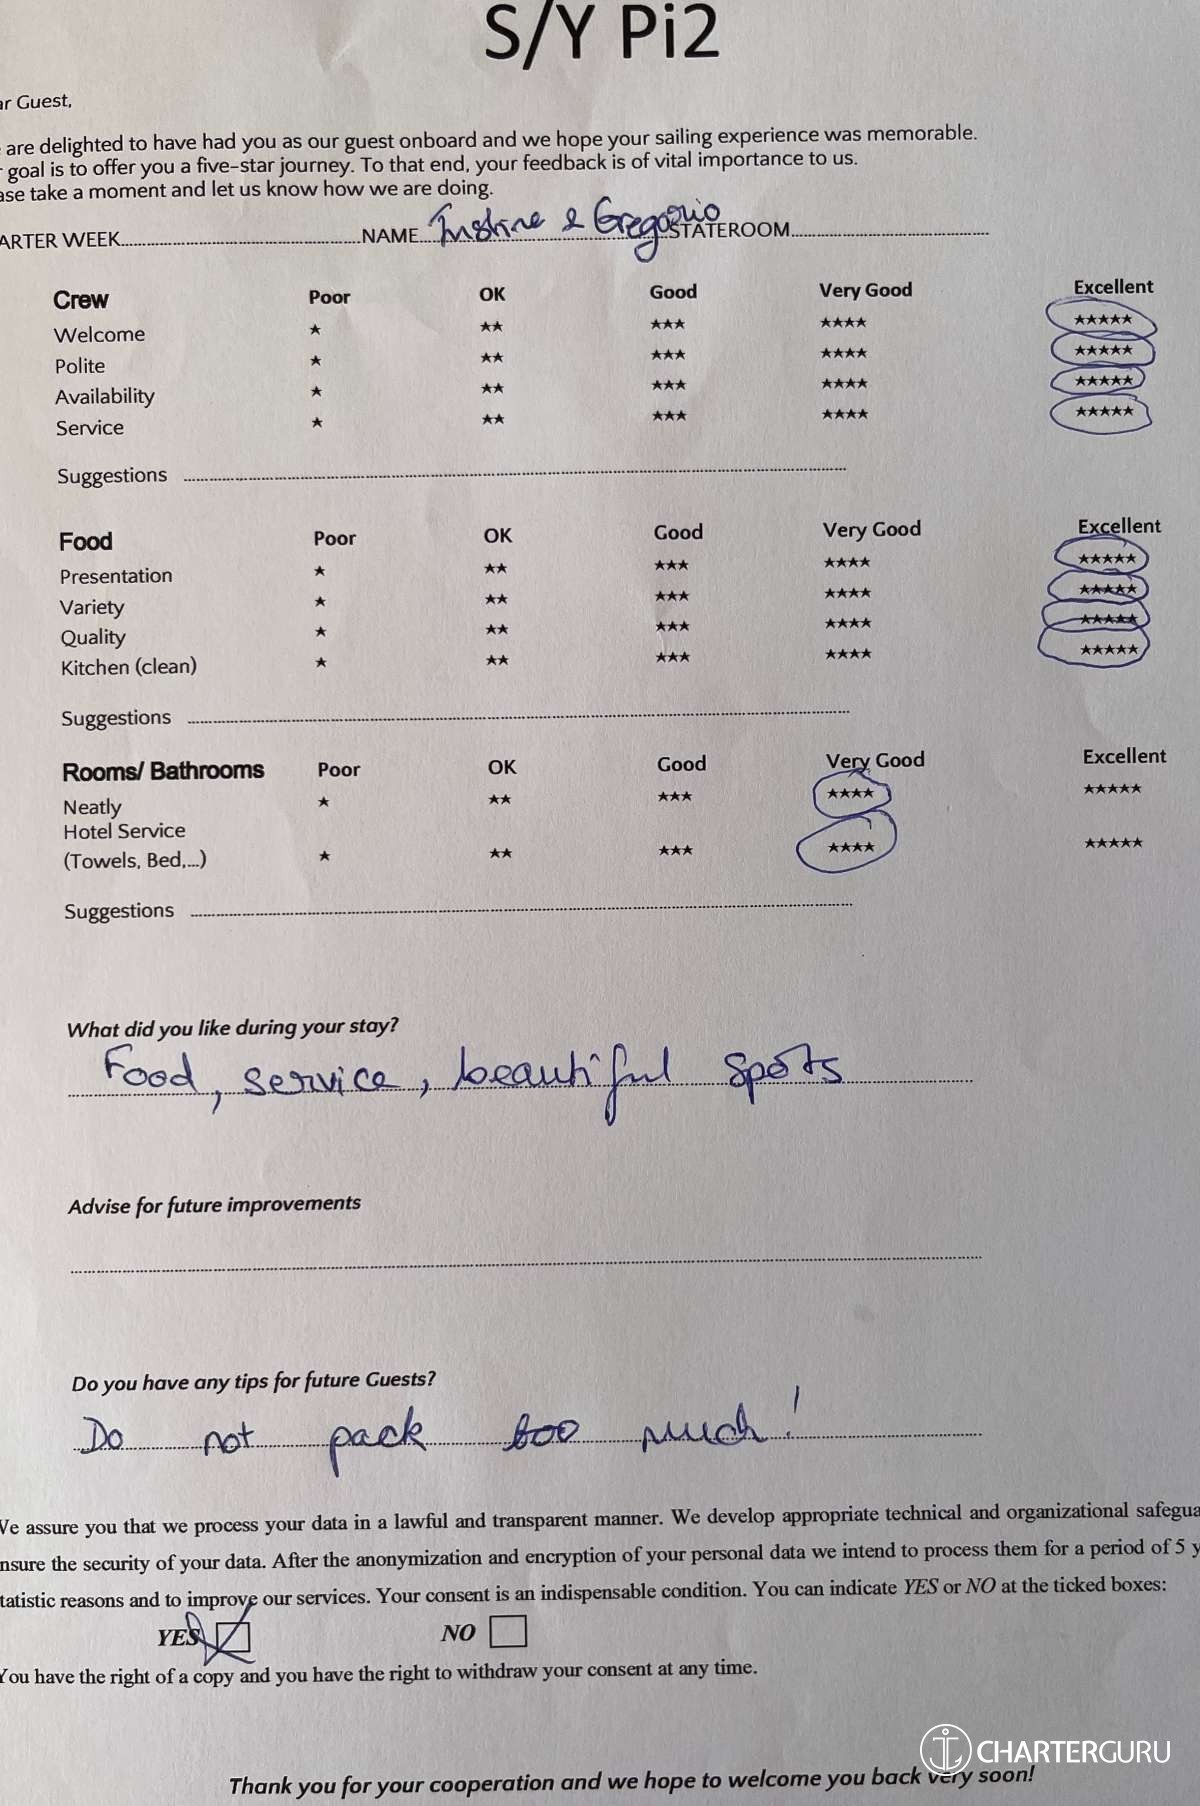 S/Y Pi2
ar Guest,
are delighted to have had you as our guest onboard and we hope your sailing experience was memorable.
goal is to offer you a five-star journey. To that end, your feedback is of vital importance to us.
ase take a moment and let us know how we are doing.
ARTER WEEK NAME & Gregorio STATEROOM
Crew Poor OK Good Very Good Excellent
Welcome ★ ★★ ★★★ ★★★★ ★★★★★
Polite ★ ★★ ★★★ ★★★★ ★★★★★
Availability ★ ★★ ★★★ ★★★★ ★★★★★
Service ★ ★★ ★★★ ★★★★ ★★★★★
Suggestions
Food Poor OK Good Very Good Excellent
Presentation ★ ★★ ★★★ ★★★★ ★★★★★
Variety ★ ★★ ★★★ ★★★★ ★★★★★
Quality ★ ★★ ★★★ ★★★★ ★★★★★
Kitchen (clean) ★ ★★ ★★★ ★★★★ ★★★★★
Suggestions
Rooms/ Bathrooms Poor OK Good Very Good Excellent
Neatly ★ ★★ ★★★ ★★★★ ★★★★★
Hotel Service
(Towels, Bed,...) ★ ★★ ★★★ ★★★★ ★★★★★
Suggestions
What did you like during your stay?
Food, service, beautiful spots
Advise for future improvements
Do you have any tips for future Guests?
Do not pack too much!
We assure you that we process your data in a lawful and transparent manner. We develop appropriate technical and organizational safegua
nsure the security of your data. After the anonymization and encryption of your personal data we intend to process them for a period of 5 y
tatistic reasons and to improve our services. Your consent is an indispensable condition. You can indicate YES or NO at the ticked boxes:
YES NO
You have the right of a copy and you have the right to withdraw your consent at any time.
CHARTERGURU
Thank you for your cooperation and we hope to welcome you back very soon!